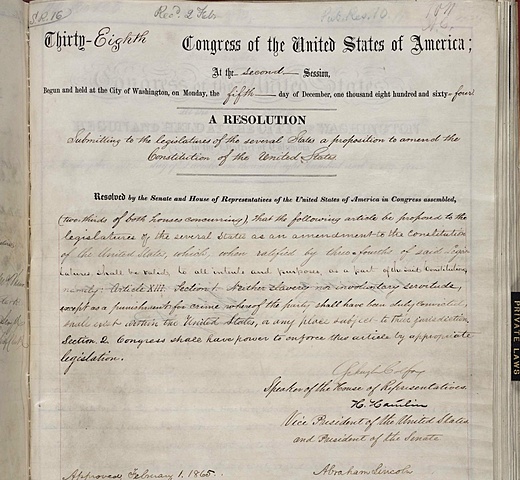 S.R. 16
Rec'd. 2 Feb
Pub. Res. 10.
Thirty-Eighth Congress of the United States of America;
At the second Session,
Begun and held at the City of Washington, on Monday, the fifth day of December, one thousand eight hundred and sixty-four
A RESOLUTION
Submitting to the legislatures of the several States a proposition to amend the
Constitution of the United States.
Resolved by the Senate and House of Representatives of the United States of America in Congress assembled,
(two-thirds of both houses concurring), that the following article be proposed to the
legislatures of the several States as an amendment to the Constitution
of the United States, which, when ratified by three-fourths of said legis-
latures shall be valid, to all intents and purposes, as a part of the said Constitution,
namely: Article XIII. Section 1. Neither slavery nor involuntary servitude,
except as a punishment for crime whereof the party shall have been duly convicted,
shall exist within the United States, or any place subject to their jurisdiction.
Section 2. Congress shall have power to enforce this article by appropriate
legislation.
Schuyler Colfax
Speaker of the House of Representatives.
H. Hamlin
Vice President of the United States
and President of the Senate
Approved, February 1. 1865.
Abraham Lincoln
PRIVATE LAWS